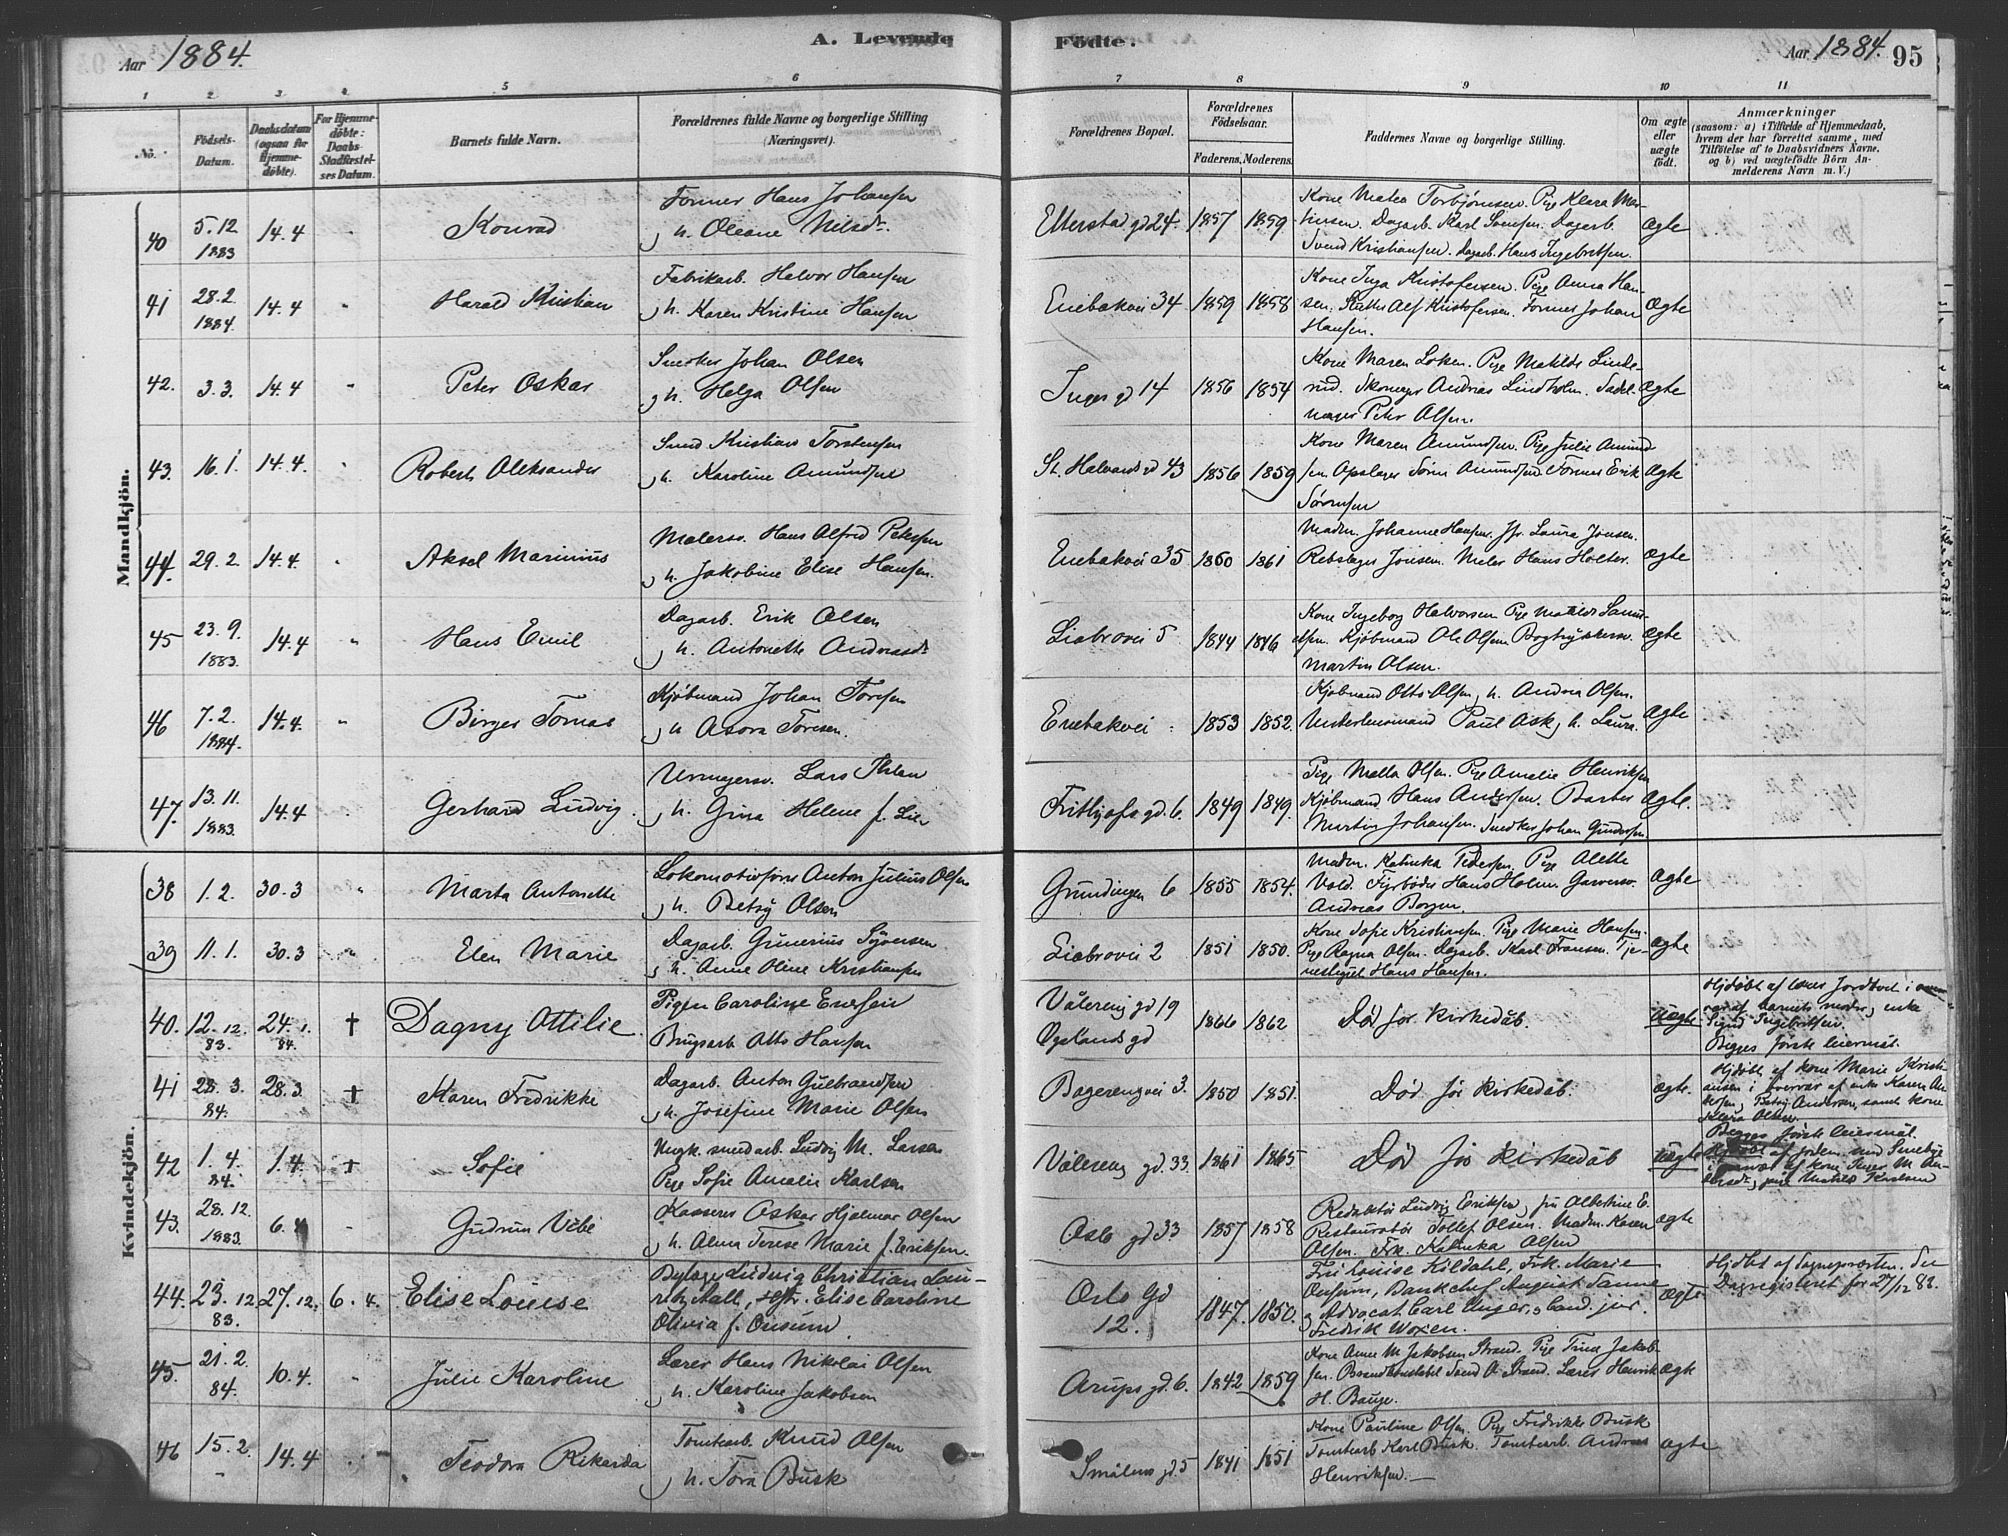 Aar 1884.
A. Levende
Födte.
Aar 1884. 95
1 2 3 4 5 6 7 8 9 10 11
No.
Födsels-Datum.
Daabsdatum (ogsaa for Hjemme-döbte).
For Hjemme-döbte: Daabs-Stadfæstel-ses Datum.
Barnets fulde Navn.
Forældrenes fulde Navne og borgerlige Stilling (Næringsvei).
Forældrenes Bopæl.
Forældrenes Födselsaar.
Faderens. Moderens.
Faddernes Navne og borgerlige Stilling.
Om ægte eller uægte födt.
Anmærkninger
(saasom: a) i Tilfælde af Hjemmedaab,
hvem der har forrettet samme, med
Tilföielse af to Daabsvidners Navne,
og b) ved uægtefödte Börn An-
melderens Navn m. V.)
Mandkjön.
40 5.12 1883 14.4 " Konrad
Former Hans Johansen
og h. Oleane Nilsdr.
Etterstad gd 24. 1857 1859
Kone Matea Torbjørnsen. Pige Klara Mar-
tinsen. Dagarb. Karl Svensen. Dagarb.
Svend Kristiansen. Dagarb. Hans Ingebretsen.
Ægte
41 28.2. 1884. 14.4 " Harald Kristian
Fabrikarb. Halvor Hansen
og h. Karen Kristine Hansen
Enebakvei 34 1859 1858
Kone Inga Kristofersen. Pige Anna Han-
sen. Alf Kristofersen. Former Johan
Hansen.
Ægte
42. 3.3. 14.4 " Peter Oskar
Snedker Johan Olsen
og h. Helga Olsen
Inges gd 14 1856 1854
Kone Maren Loken. Pige Matilde Linde-
rud. Skomager Andreas Lindholm. Sadel-
mager Peter Olsen.
Ægte
43. 16.1. 14.4. " Robert Aleksander
Smed Kristian Torstensen
og h. Karoline Amundsen
St. Halvards gd 43 1856 1859
Kone Maren Amundsen. Pige Julie Amund
sen. Opslager Amundsen. Former Erik
Sörensen
Ægte
44. 29.2 14.4. " Aksel Marinius
Malersv. Hans Alfred Petersen
og h. Jakobine Elise Hansen.
Enebakvei 35 1860 1861
Madm. Johanne Hansen. Jfr. Laura Jonsen.
Rebslager Jonsen. Maler Hans Holter.
Ægte
45 23.9. 1883. 14.4 " Hans Emil
Dagarb. Erik Olsen
og h. Antonette Andreasdr
Liabrovei 5 1844 1846
Kone Ingeborg Halvorsen Pige Matilde
Kjöbmand Ole Olsen Bogtrykkersv.
Martin Olsen.
Ægte
46 7.2. 1884. 14.4. " Birger Tomas
Kjöbmand Johan Toresen
og h. Asora Toresen.
Enebakvei 1853 1852.
Kjöbmand Otto Olsen, h. Andrea Olsen.
Underlensmand Paul Ask, h. Laura.
Ægte
47. 13.11. 1883. 14.4 " Gerhard Ludvig
Urmagersv. Lars
og h. Gina Helene f. Lier
Frithjofs gd. 6. 1849 1849.
Pige Malla Olsen. Pige Amalie Henriksen
Kjöbmand Hans Andersen. Barber
Martin Johansen. Snedker Johan Gundersen
Ægte.
Kvindekjön.
38 1.2. 30.3 " Marta Antonette
Lokomotivförer Anton Julius Olsen
og h. Betsy Olsen
Gründingen 6 1855 1854.
Madm. Katinka Pedersen. Pige Alette
Vold. Fyrböder Hans Holm. Garversv.
Andreas Borgen.
Ægte
39 11.1. 30.3 " Elen Marie
Dagarb. Gunerius Syversen
og h. Anne Oline Kristiansen
Liabrovei 2 1851 1850.
Kone Sofie Kristiansen. Pige Marie Hansen.
Pige Ragna Olsen. Dagarb. Karl Fransen. Tje-
nestegut Hans Hansen.
ægte
40. 12.12. 83. 24.1. 84. † Dagny Ottilie
Pigen Caroline Enersen
Brugsarb Otto Hansen
Vålereng gd 19
Opslands gd
1866 1862
Död för kirkedåb.
Uægte
Hjdöbt af Jordbret i
vær af barnets moder, enke
Sigrid Ingebretsen.
Begges förste leiermål.
41 28.3. 84. 28.3. † Karen Fredrikke
Dagarb. Anton Gulbrandsen
og h. Josefine Marie Olsen
Bogerengvei 3. 1850 1851.
Död för kirkedåb.
ægte.
Hjdöbt af kone Marie Kristi-
ansen i overvær af enke Karen An-
Betsy Andersen, samt kone
Klara Olsen
42 1.4. 84. 1.4. † Sofie
Ungk. smedarb. Ludvig M. Larsen
Pige Sofie Amalie Karlsen
Vålereng gd. 33. 1861 1865
Död för kirkedåb
uægte
Begges förste leiermål.
Hjdöbt af jordem.
af kone Inger M. An-
dersdr, pige Matilde Karlsen
43. 28.12. 1883. 6.4 " Gudrun Vibe
Kasserer Oskar Hjalmar Olsen
og h. Alma Terese Marie f. Eriksen.
Oslo gd 33 1857 1858
Redaktör Ludvig Eriksen, fru Albertine E.
Restauratör Tollef Olsen. Madm. Karen
Olsen. Frk. Katinka Olsen
Ægte
44. 23.12 83. 27.12. 6.4. Elise Louise
Byfoge Ludvig Christian Lau-
ritz Aall, Hstr. Elise Caroline
Olivia f. Onsum.
Oslo Gd 12. 1847. 1850.
Fru Louise Kildahl, Frk. Marie
Onsum, Bankchef August Sanne
og Advocat Carl Unger, og Cand. jur.
Fredrik Woxen.
Ægte
Hjdöbt af Sogneprosten. Se
Dagregisteret for 27/12 83.
45. 21.2. 84. 10.4. " Julie Karoline
Lærer Hans Nikolai Olsen
og h. Karoline Jakobsen
Arups gd. 6. 1842 1859
Kone Anne M. Jakobsen Strand. Pige Trine Jakob-
sen. Brandkonstabel Strand. Lærer Henrik
H. Bauge.
ægte
46 15.2. 14.4 " Teodora Rikarda
Tomtearb. Knud Olsen
og h. Tora Busk
Smålens gd. 5 1841 1851
Kone Pauline Olsen. Pige Fredrikke Busk
Tomtearb Karl Busk. Tomtearb. Andreas
Henriksen.
ægte